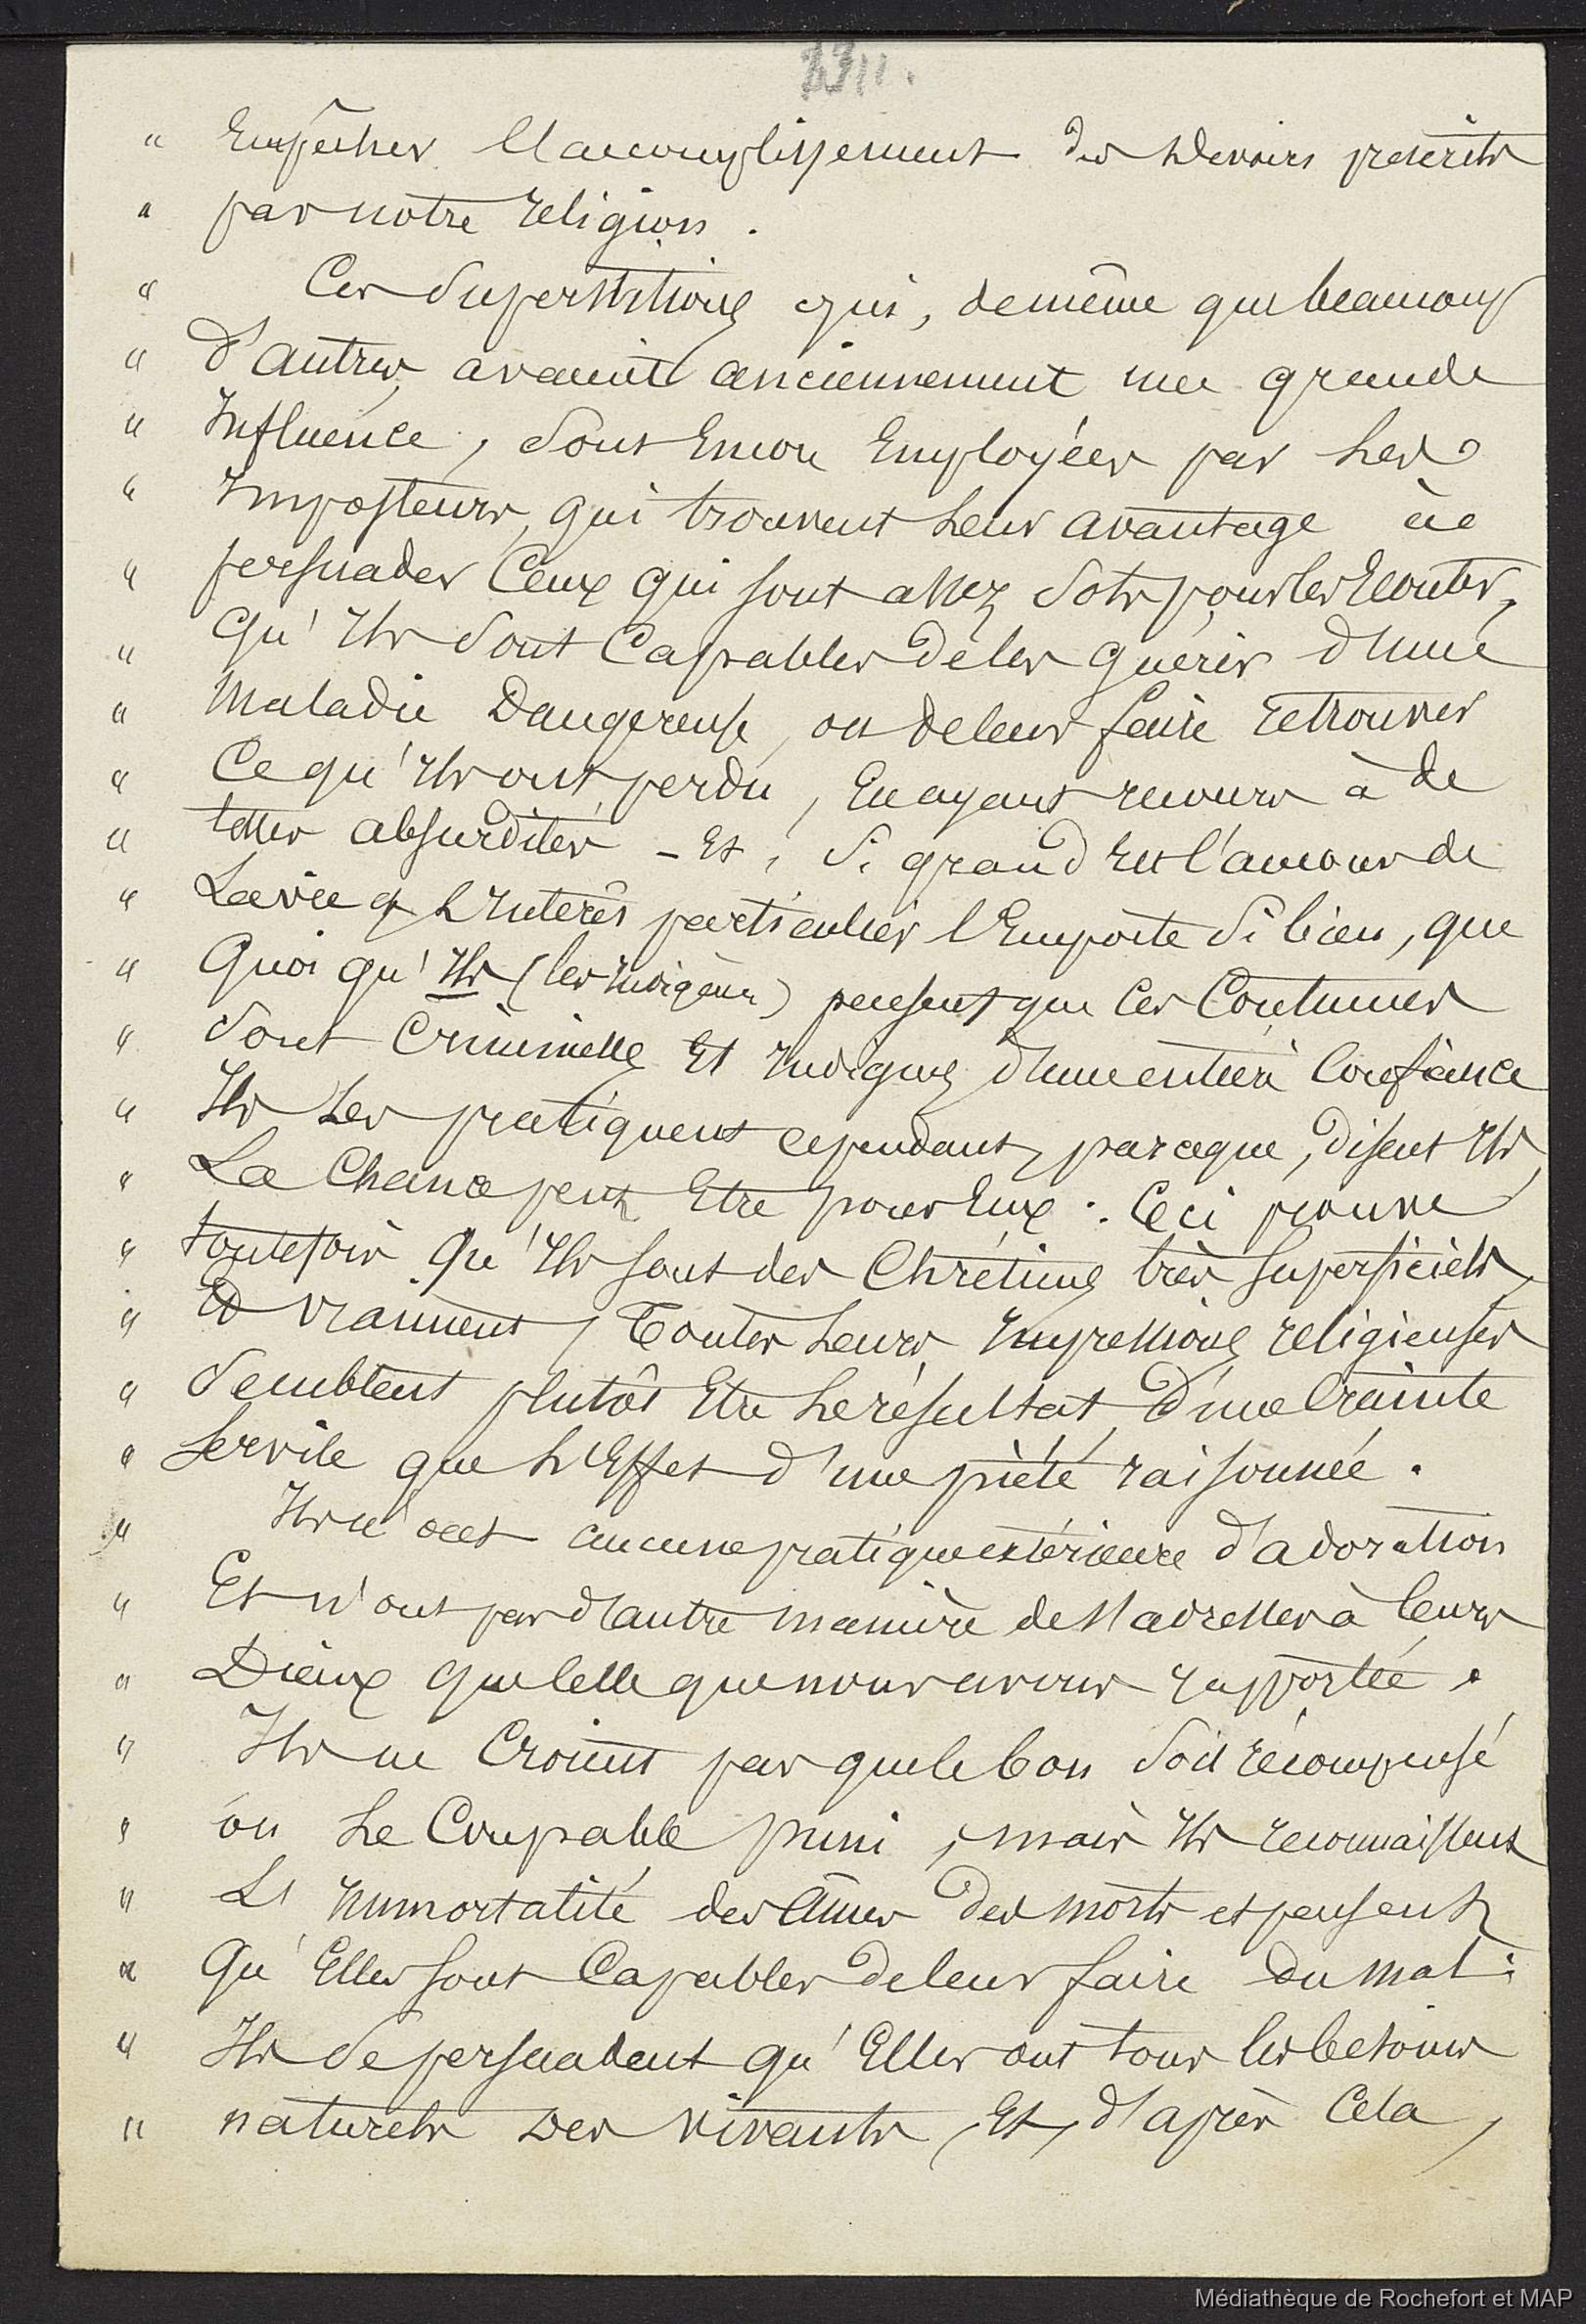 " Empêcher l'accomplissement des Devoirs prescrits
" par notre religion.
" Ces Superstitions qui, de même que beaucoup
" d'autres, avaient anciennement une grande
" Influence, Sont Encore Employées par Les
" Imposteurs, qui trouvent Leur avantage à
" persuader Ceux qui sont assez Sots pour les Ecouter,
" Qu'Ils Sont Capables de les guérir d'une
" Maladie Dangereuse, ou de leur faire retrouver
" Ce qu'Ils ont perdu, En ayant recours à de
" telles absurdités – Et, Si grand Est l'amour de
" La vie & L'Intérêt particulier l'Emporte Si bien, que
" Quoi qu'Ils (les Indigènes) pensent que Ces Coutumes
" Sont Criminelles Et Indignes d'une entière Confiance
" Ils Les pratiquent cependant, parceque, disent Ils,
" La Chance peut Etre pour Eux. Ceci prouve
" toutefois Qu'Ils sont des Chrétiens très superficiels,
" Et vraiment, Toutes Leurs Impressions religieuses
" Semblent plutôt Etre Le résultat d'une Crainte
" Servile que L'Effet d'une piété raisonnée.
" Ils n'ont aucune pratique extérieure d'adoration
" Et n'ont pas d'autre manière de s'adresser à leurs
" Dieux que celle que nous avons rapportée.
" Ils ne Croient pas que le bon Soit récompensé
" ou Le Coupable puni, mais Ils reconnaissent
" L'Immortalité des Ames des morts et pensent
" Qu'Elles sont Capables de leur faire du mal:
" Ils Se persuadent qu'Elles ont tous les besoins
" naturels des vivants, Et, d'après Cela,
Médiathèque de Rochefort et MAP